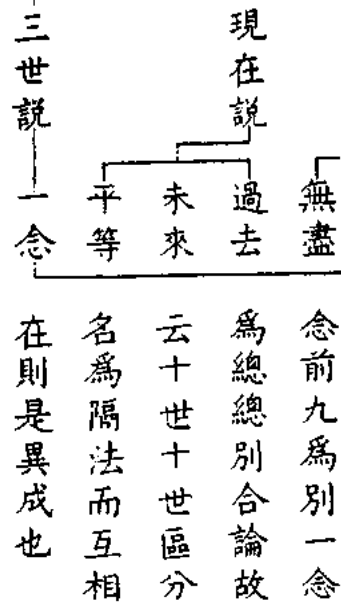 無盡
現在説
過去
未來
平等
三世説
一念
念前九爲別一念
爲總總別合論故
云十世十世區分
名爲隔法而互相
在則是異成也